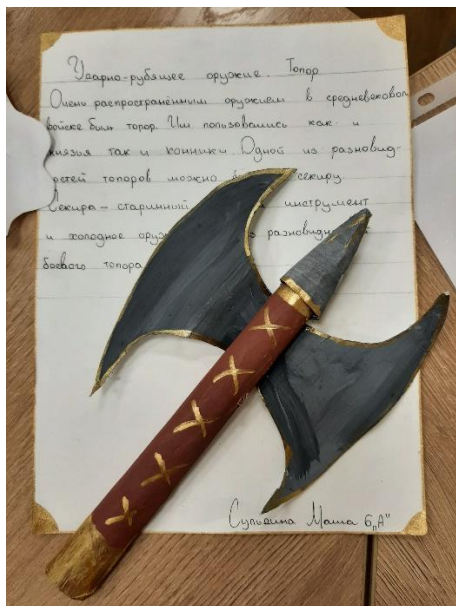 Ударно-рубящее оружие. Топор
Очень распространённым оружием в средневековом
войске был топор. Им пользовались как и
князья так и конники Одной из разновид-
остей топоров можно секиру.
Секира – старинный инструмент
и холодное оруж разновидн
боевого топора
Маша 6 "А"